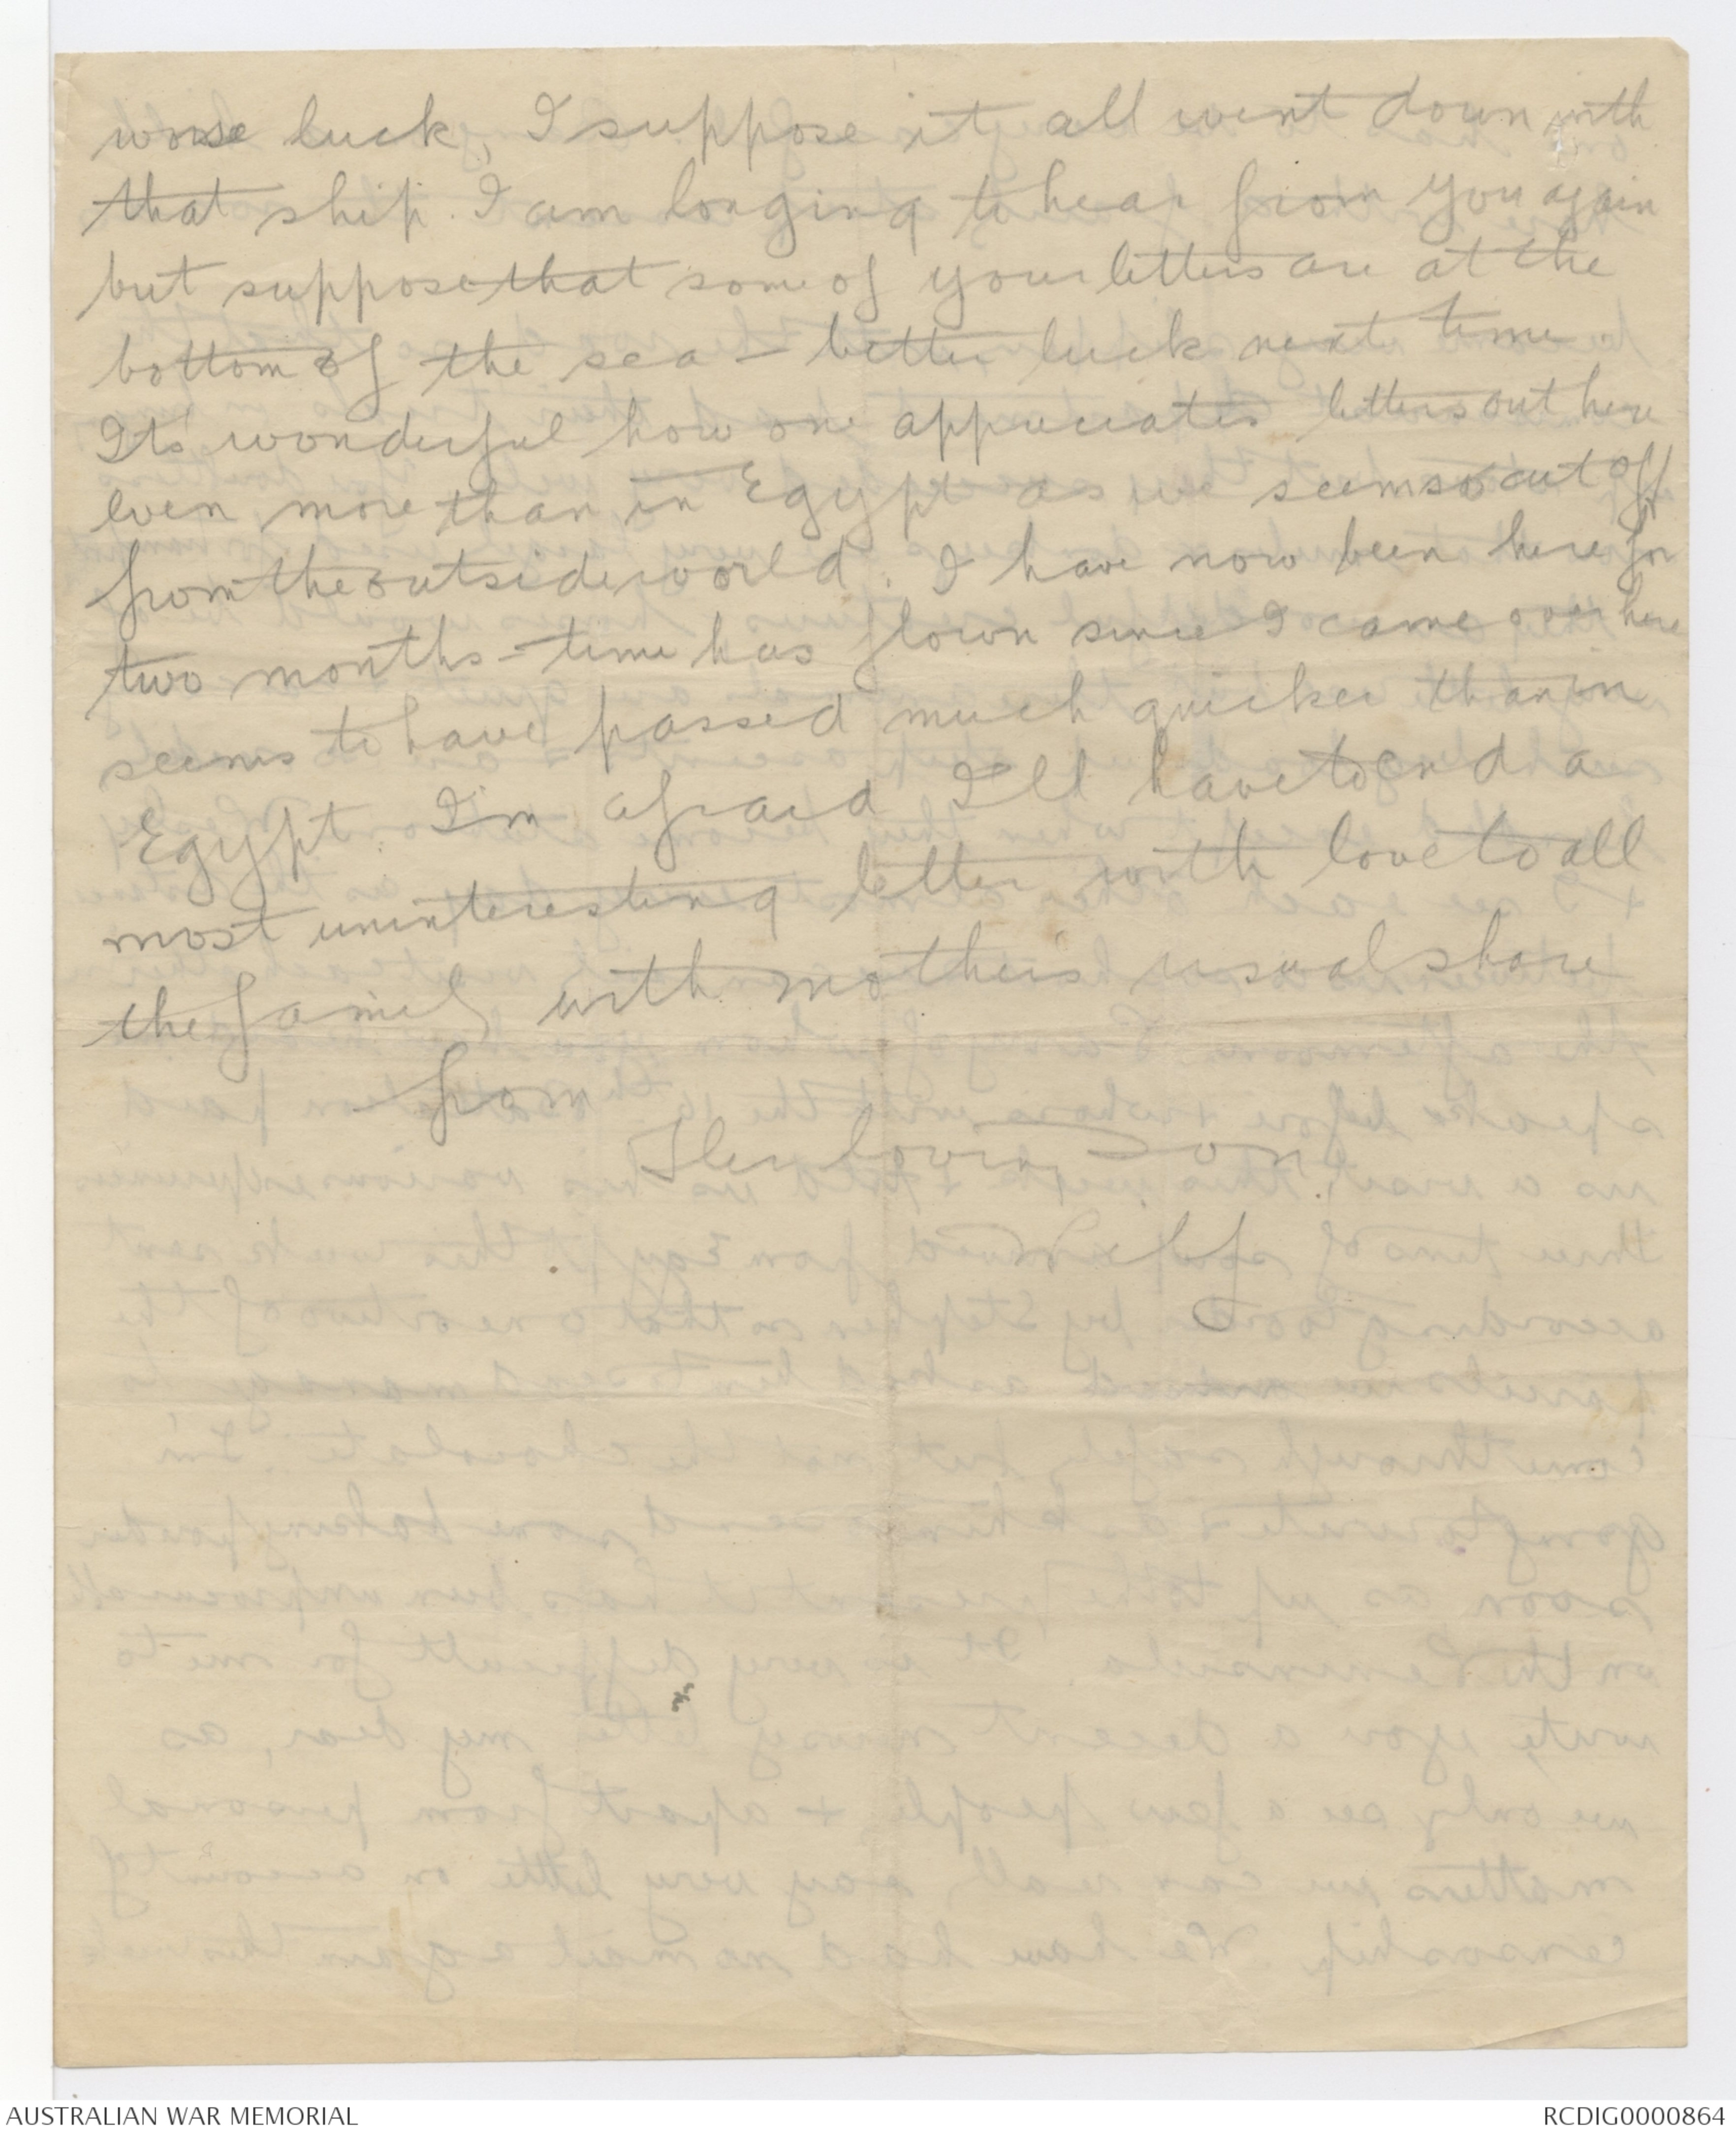 worse luck, I suppose it all went down with
that ship. I am longing to hear from you again
but suppose that some of your letters are at the
bottom of the sea - better luck next time.
Its wonderful how one appreciates letters out here
even more than in Egypt as we seem so cut off
from the outside world. I have now been here for
two months - time has flown since I came over here
seems to have passed much quicker than in
Egypt. I'm afraid I'll have to end a
most uninteresting letter with love to all
the family with mother's usual share
from
Her loving Son.
AUSTRALIAN WAR MEMORIAL
RCDIG0000864